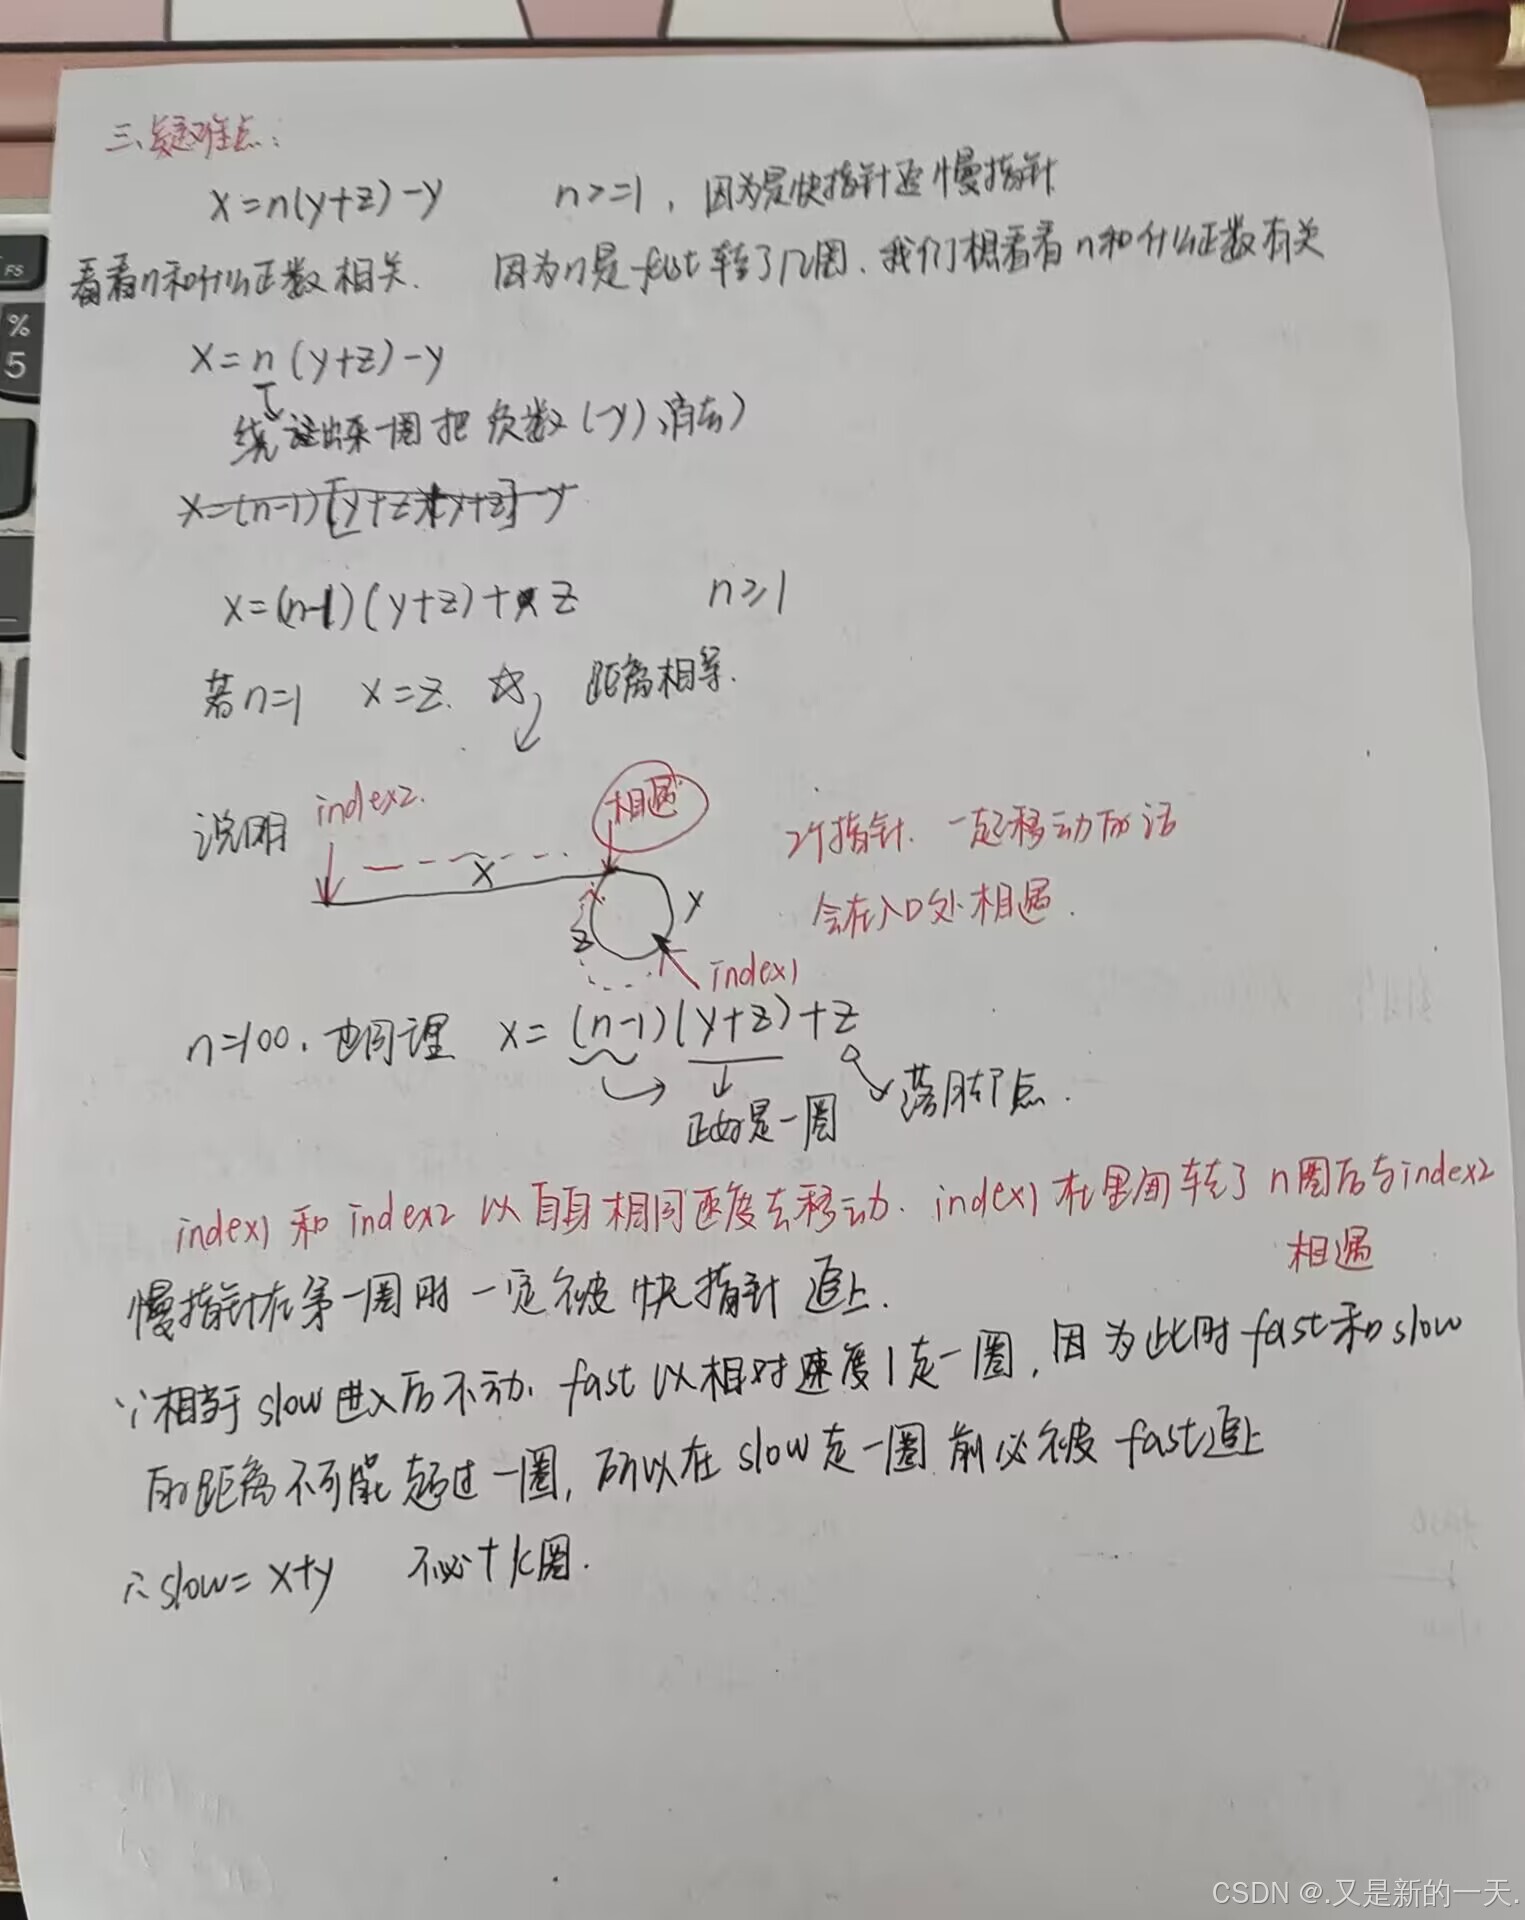 三、疑难点:
x=n(y+z)-y n>=1, 因为是快指针追慢指针
看看n和什么正数相关. 因为n是fast转了n圈、我们想看看n和什么正数有关
x=n(y+z)-y
绕 出来一圈把负数(-y)消去)
x=(n-1)[y+z)+y+z]-y
x=(n-1)(y+z)+z n≥1
若n=1 x=z. 距离相等.
说明 index2. 相遇 2个指针. 一起移动的话
x y 会在入口处相遇.
z index1
n=100. 也同理 x=(n-1)(y+z)+z
正好是一圈 落脚点.
index1 和 index2 以自身相同速度去移动. index1 在里面转了 n圈后与index2
相遇
慢指针在第一圈时一定被快指针追上.
∵相当于 slow进入后不动. fast 以相对速度1走一圈, 因为此时 fast和slow
的距离不可能超过一圈, 所以在 slow走一圈前必被 fast追上
∴slow=x+y 不必+k圈.
FS
%
5
CSDN @.又是新的一天.